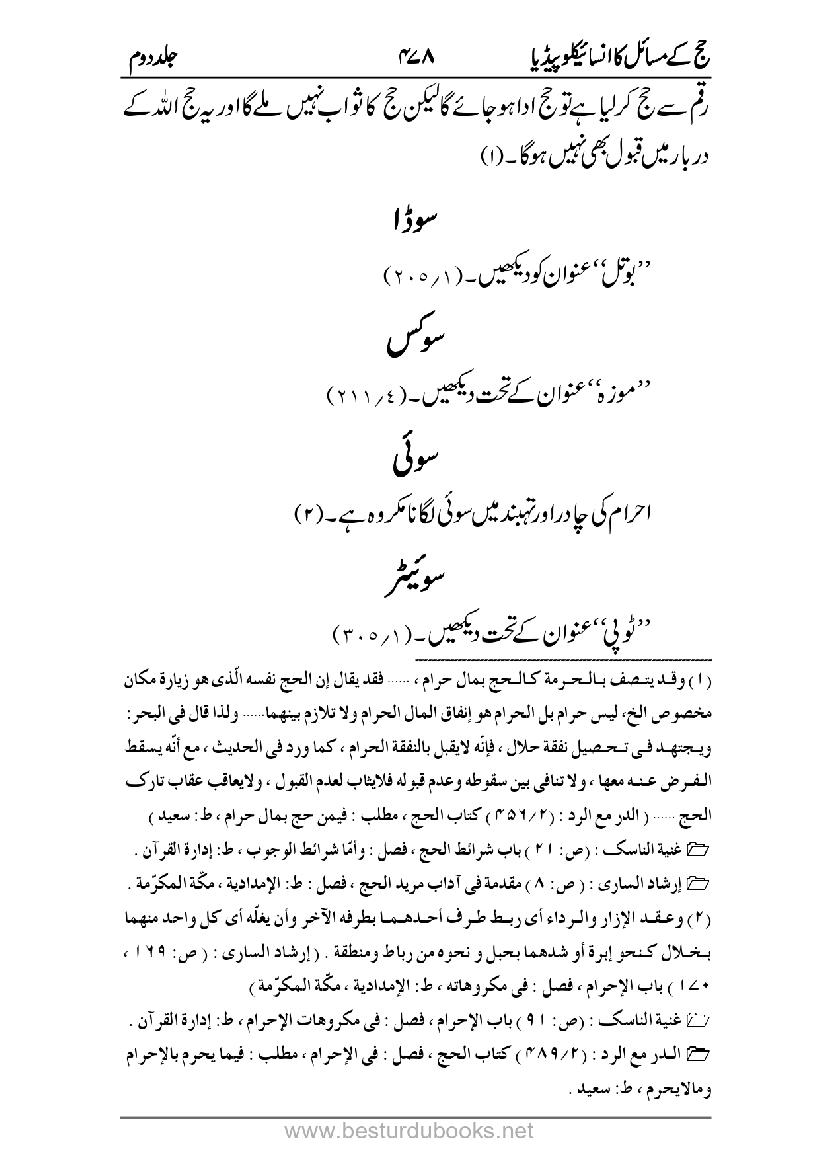 حج کے مسائل کا انسائیکلوپیڈیا ۴۷۸ جلد دوم
رقم سے حج کرلیا ہے تو حج ادا ہوجائے گا لیکن حج کا ثواب نہیں ملے گا اور یہ حج اللہ کے
دربار میں قبول بھی نہیں ہوگا۔(۱)
سوڈا
’’بوتل‘‘ عنوان کو دیکھیں۔(۲۰۵/۱)
سوکس
’’موزہ‘‘ عنوان کے تحت دیکھیں۔(۲۱۱/٤)
سوئی
احرام کی چادر اور تہبند میں سوئی لگانا مکروہ ہے۔(۲)
سوئیٹر
’’ٹوپی‘‘ عنوان کے تحت دیکھیں۔(۳۰۵/۱)
(۱) وقد يتصف بالحرمة كالحج بمال حرام ، ...... فقد يقال إن الحج نفسه الّذى هو زيارة مكان
مخصوص الخ، ليس حرام بل الحرام هو إنفاق المال الحرام ولا تلازم بينهما...... ولذا قال فى البحر:
ويجتهد فى تحصيل نفقة حلال ، فإنّه لايقبل بالنفقة الحرام ، كما ورد فى الحديث ، مع أنّه يسقط
الفرض عنه معها ، ولا تنافى بين سقوطه وعدم قبوله فلايثاب لعدم القبول ، ولايعاقب عقاب تارك
الحج ...... ( الدر مع الرد : (۴۵۶/۲) كتاب الحج ، مطلب : فيمن حج بمال حرام ، ط: سعيد )
غنية الناسك : (ص: ۲۱) باب شرائط الحج ، فصل : وأمّا شرائط الوجوب ، ط: إدارة القرآن .
إرشاد السارى : ( ص: ۸) مقدمة فى آداب مريد الحج ، فصل : ط: الإمدادية ، مكّة المكرّمة .
(۲) وعقد الإزار والرداء أى ربط طرف أحدهما بطرفه الآخر وأن يغلّه أى كل واحد منهما
بخلال كنحو إبرة أو شدهما بحبل و نحوه من رباط ومنطقة . ( إرشاد السارى : ( ص: ۱۶۹ ،
۱۷۰ ) باب الإحرام ، فصل : فى مكروهاته ، ط: الإمدادية ، مكّة المكرّمة )
غنية الناسك : (ص: ۹۱) باب الإحرام ، فصل : فى مكروهات الإحرام ، ط: إدارة القرآن .
الدر مع الرد : (۴۸۹/۲) كتاب الحج ، فصل : فى الإحرام ، مطلب : فيما يحرم بالإحرام
ومالايحرم ، ط: سعيد .
www.besturdubooks.net